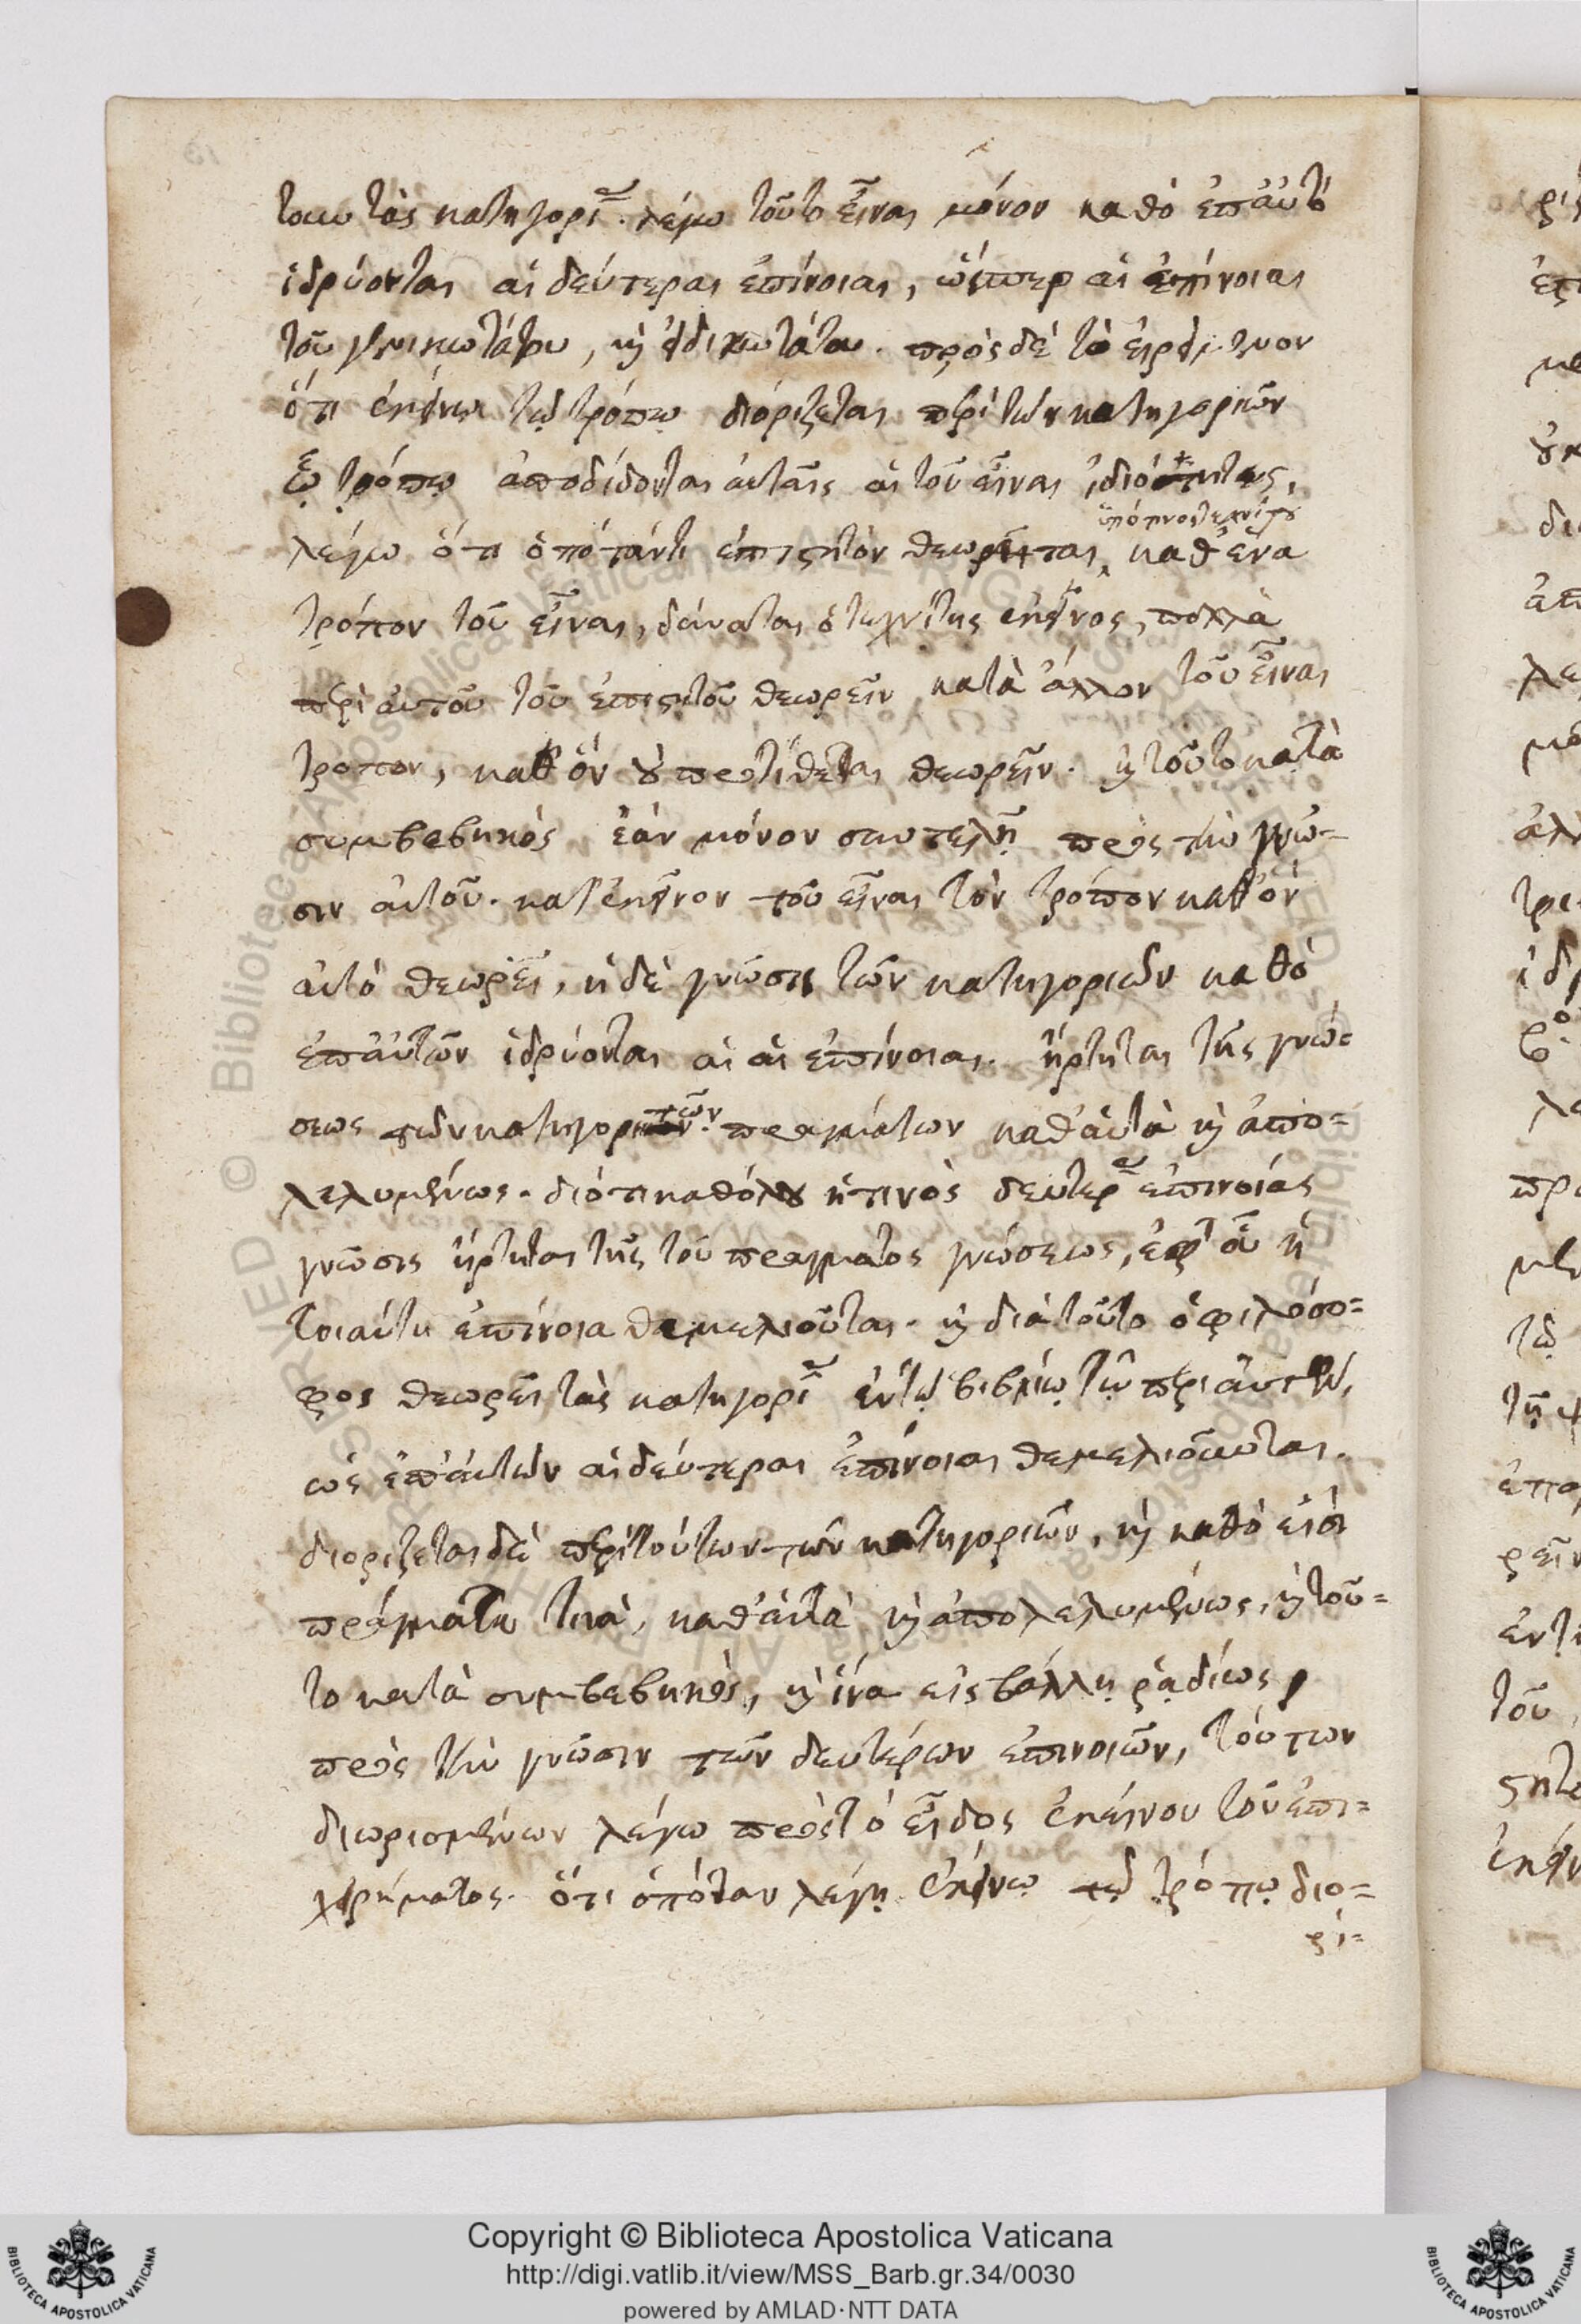 τοιαύτας κατηγορίας. λέγω τοῦτο εἶναι μόνον καθὸ ἐπ' αὐτὸ
ἱδρύονται αἱ δεύτεραι ἐπίνοιαι, ὥσπερ αἱ ἐπίνοιαι
τοῦ γενικωτάτου, καὶ εἰδικωτάτου. πρὸς δὲ τὸ εἰρημένον
ὅτι ἐκείνῳ τῷ τρόπῳ διορίζεται περὶ τῶν κατηγοριῶν
ᾧ τρόπῳ ἀποδίδονται αὐταῖς αἱ τοῦ εἶναι ἰδιότητες,
λέγω ὅτι ὁπόταν τι ἐπιστητὸν θεωρῆται, καθ' ἕνα
τρόπον τοῦ εἶναι, δύναται ὁ τεχνίτης ἐκεῖνος, πολλὰ
περὶ αὐτοῦ τοῦ ἐπιστητοῦ θεωρεῖν κατὰ ἄλλον τοῦ εἶναι
τρόπον, καθ' ὃν οὐ προτίθεται θεωρεῖν. καὶ τοῦτο κατὰ
συμβεβηκὸς ἐὰν μόνον συντελῇ πρὸς τὴν γνῶ-
σιν αὐτοῦ. κατ' ἐκεῖνον τοῦ εἶναι τὸν τρόπον καθ' ὃν
αὐτὸ θεωρεῖ, ἡ δὲ γνῶσις τῶν κατηγοριῶν καθὸ
ἐπ' αὐτῶν ἱδρύονται αἱ αἱ ἐπίνοιαι. ἤρτηται τῆς γνώ-
σεως τῶν κατηγορητῶν πραγμάτων καθ' αὑτὰ καὶ ἀπο-
λελυμένως. διότι καθόλου ἡ τινὸς δευτέρας ἐπινοίας
γνῶσις ἤρτηται τῆς τοῦ πράγματος γνώσεως, ἐφ' οὗ ἡ
τοιαύτη ἐπίνοια θεμελιοῦται. καὶ διὰ τοῦτο ὁ φιλόσο-
φος θεωρεῖ τὰς κατηγορίας ἐν τῷ βιβλίῳ τῷ περὶ αὐτῶν,
ὡς ἐπ' αὐτῶν αἱ δεύτεραι ἐπίνοιαι θεμελιοῦνται.
διορίζεται δὲ περὶ τούτων τῶν κατηγοριῶν, καὶ καθὸ εἰσὶ
πράγματα τινὰ, καθ' αὑτὰ καὶ ἀπολελυμένως, καὶ τοῦ-
το κατὰ συμβεβηκὸς, καὶ ἵνα εἰσβάλλῃ ῥᾳδίως,
πρὸς τὴν γνῶσιν τῶν δευτέρων ἐπινοιῶν, τούτων
διωρισμένων λέγω πρὸς τὸ εἶδος ἐκείνου τοῦ ἐπι-
χειρήματος. ὅτι ὁπόταν λέγῃ ἐκείνῳ τῷ τρόπῳ διο-
ρί-
Copyright © Biblioteca Apostolica Vaticana
http://digi.vatlib.it/view/MSS_Barb.gr.34/0030
powered by AMLAD·NTT DATA